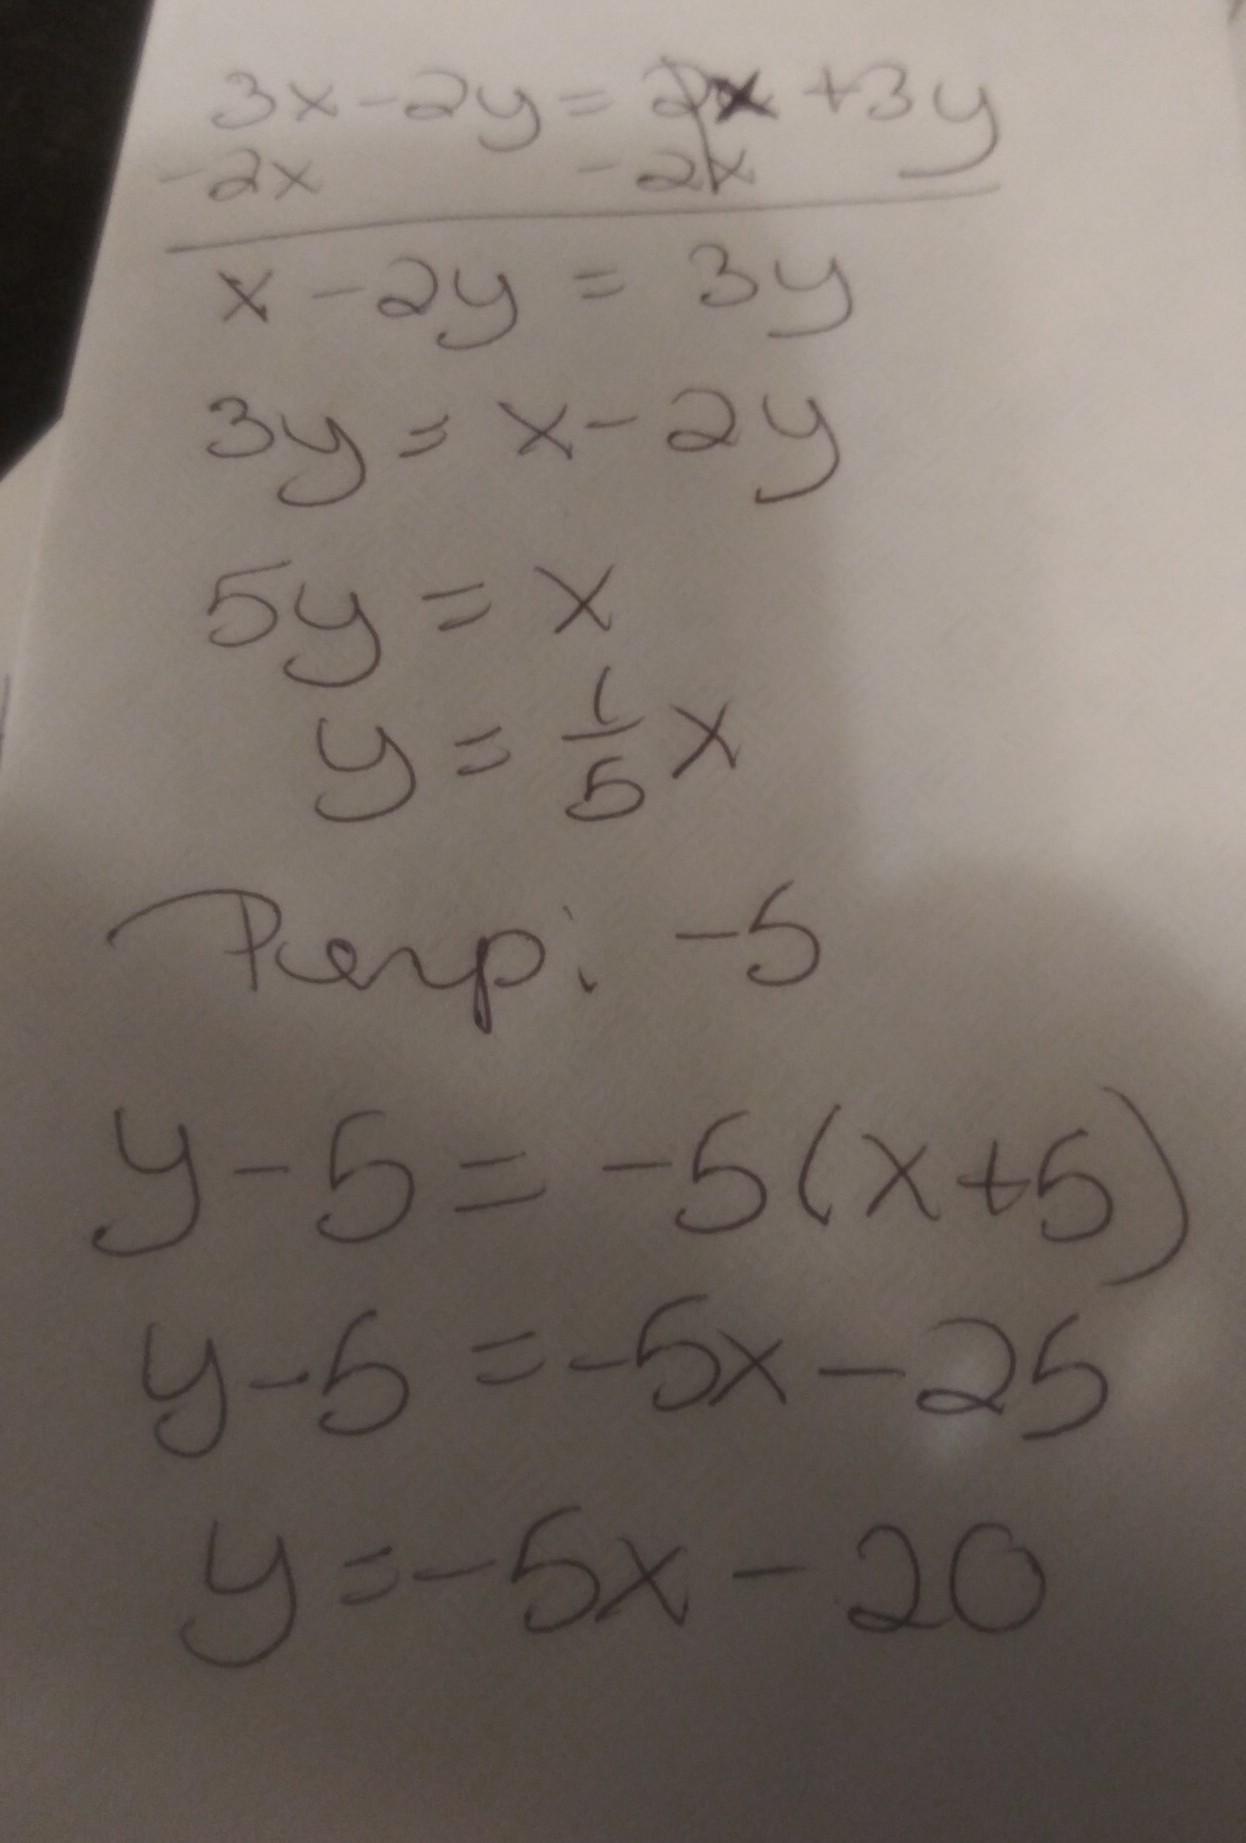 3x-2y=2x+3y
-2x -2x
x-2y = 3y
3y = x-2y
5y = x
y = 1/5 x
Perp: -5
y-5=-5(x+5)
y-5=-5x-25
y=-5x-20